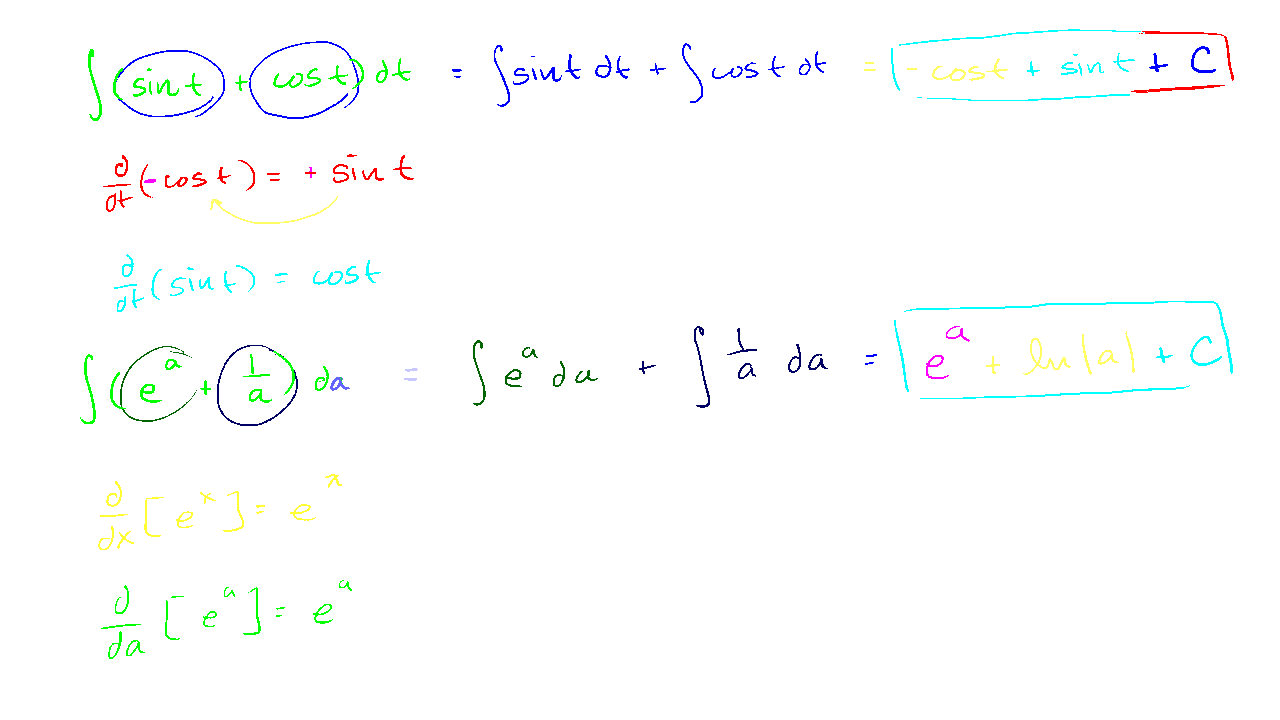 ∫(sin t + cos t) dt = ∫sin t dt + ∫cos t dt = -cos t + sin t + C
d/dt (-cos t) = + sin t
d/dt (sin t) = cos t
∫(e^a + 1/a) da = ∫e^a da + ∫1/a da = e^a + ln|a| + C
d/dx [e^x] = e^x
d/da [e^a] = e^a